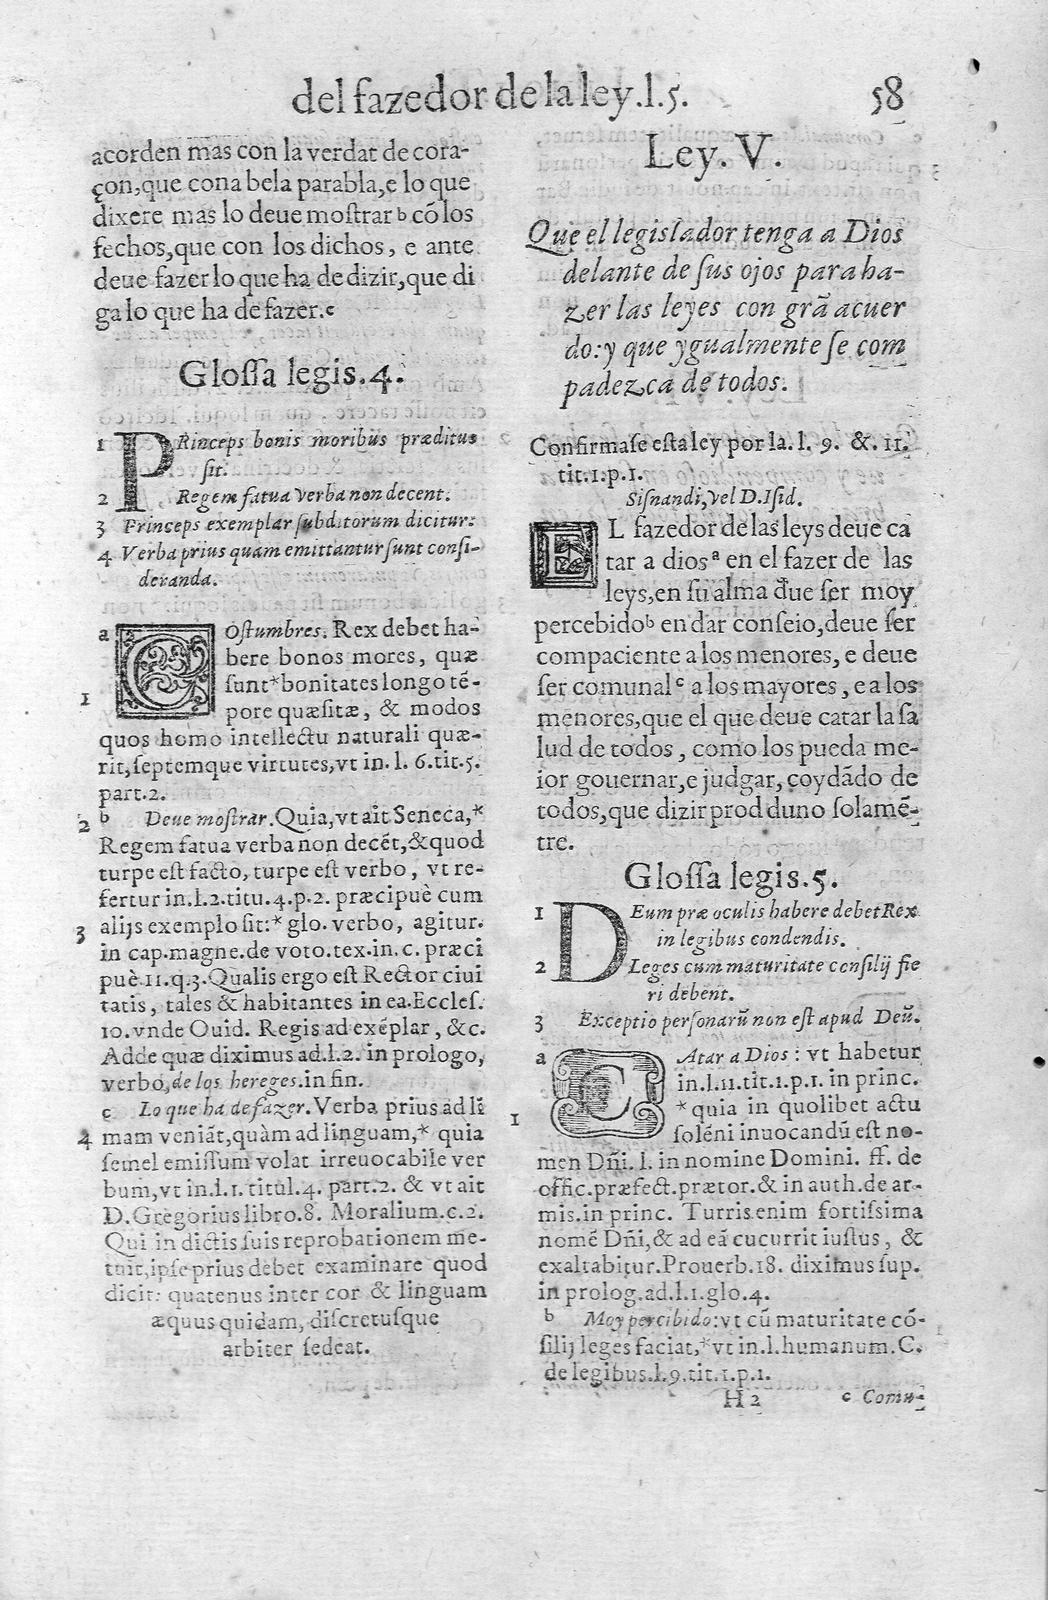 del fazedor de la ley.l.5. 58
acorden mas con la verdat de cora-
çon,que cona bela parabla,e lo que
dixere mas lo deue mostrar b cõ los
fechos,que con los dichos, e ante
deue fazer lo que ha de dizir,que di
ga lo que ha de fazer.c
Glossa legis.4.
1 PRinceps bonis moribus præditus
sit.
2 Regem fatua verba non decent.
3 Princeps exemplar subditorum dicitur.
4 Verba prius quam emittantur sunt consi-
deranda.
a COstumbres. Rex debet ha-
bere bonos mores, quæ
1 sunt*bonitates longo tẽ-
pore quæsitæ, & modos
quos homo intellectu naturali quæ-
rit,septemque virtutes,vt in.l. 6.tit.5.
part.2.
2 b Deue mostrar.Quia,vt ait Seneca,*
Regem fatua verba non decẽt,&quod
turpe est facto, turpe est verbo, vt re-
fertur in.l.2.titu.4.p.2. præcipuè cum
3 alijs exemplo sit:* glo. verbo, agitur.
in cap.magne.de voto.tex.in.c. præci
puè.11.q.3.Qualis ergo est Rector ciui
tatis, tales & habitantes in ea.Eccles.
10.vnde Ouid. Regis ad exẽplar, &c.
Adde quæ diximus ad.l.2. in prologo,
verbo,de los hereges.in fin.
c Lo que ha de fazer.Verba prius ad li
4 mam veniãt,quàm ad linguam,* quia
semel emissum volat irreuocabile ver
bum,vt in.l.1. titul.4. part.2. & vt ait
D.Gregorius libro.8. Moralium.c.2.
Qui in dictis suis reprobationem me-
tuit,ipse prius debet examinare quod
dicit: quatenus inter cor & linguam
æquus quidam, discretusque
arbiter sedeat.
Ley. V.
Que el legislador tenga a Dios
delante de sus ojos para ha-
zer las leyes con grã acuer
do:y que ygualmente se com
padezca de todos.
Confirmase esta ley por la. l. 9. &. 11.
tit.1.p.1.
Sisnandi, vel D.Isid.
EL fazedor de las leys deue ca
tar a dios a en el fazer de las
leys,en su alma due ser moy
percebido b en dar conseio,deue ser
compaciente a los menores, e deue
ser comunal c a los mayores, e a los
menores,que el que deue catar la sa
lud de todos, como los pueda me-
ior gouernar,e judgar, coydãdo de
todos,que dizir prod duno solamẽ-
tre.
Glossa legis.5.
1 DEum præ oculis habere debet Rex
in legibus condendis.
2 Leges cum maturitate consilij fie
ri debent.
3 Exceptio personarũ non est apud Deũ.
a CAtar a Dios: vt habetur
in.l.11.tit.1.p.1. in princ.
1 *quia in quolibet actu
solẽni inuocandũ est no-
men Dñi. l. in nomine Domini. ff. de
offic.præfect.prætor.& in auth.de ar-
mis.in princ. Turris enim fortissima
nomẽ Dñi,& ad eã cucurrit iustus, &
exaltabitur.Prouerb.18. diximus sup.
in prolog.ad.l.1.glo.4.
b Moy percibido:vt cũ maturitate cõ-
silij leges faciat,*vt in.l.humanum.C.
de legibus.l.9.tit.1.p.1.
H 2 c Comu-